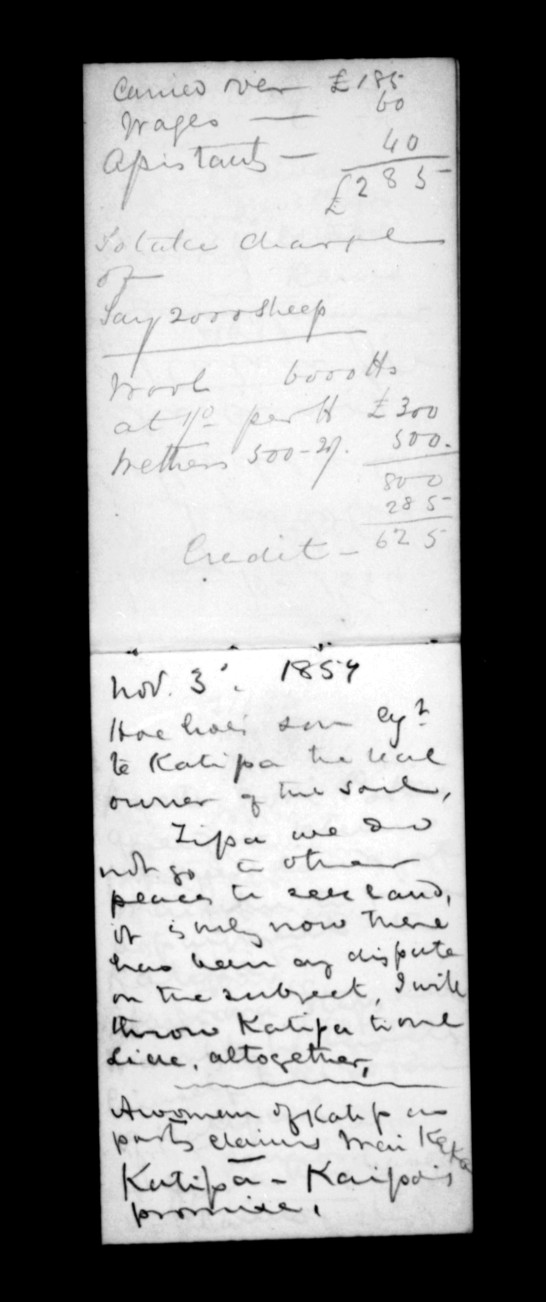 Carried over £185
60
Wages —
Assistants — 40
£285
To take charge
of
Say 2000 sheep
Wool 6000 lbs
at 1/0 per lb £300
Wethers 500 - 20/. 500.
800
285
Credit - 625
Nov. 3d. 1859
Hoe hoes son
to Katipa the real
owner of the soil,
Zipa we do
not go to other
places to seek land,
it is only now there
has been any dispute
on the subject, I will
throw Katipa to one
side, altogether,
A woman of Katipas
party claims Wai Kaka
Katipa - Kaipais
promise.